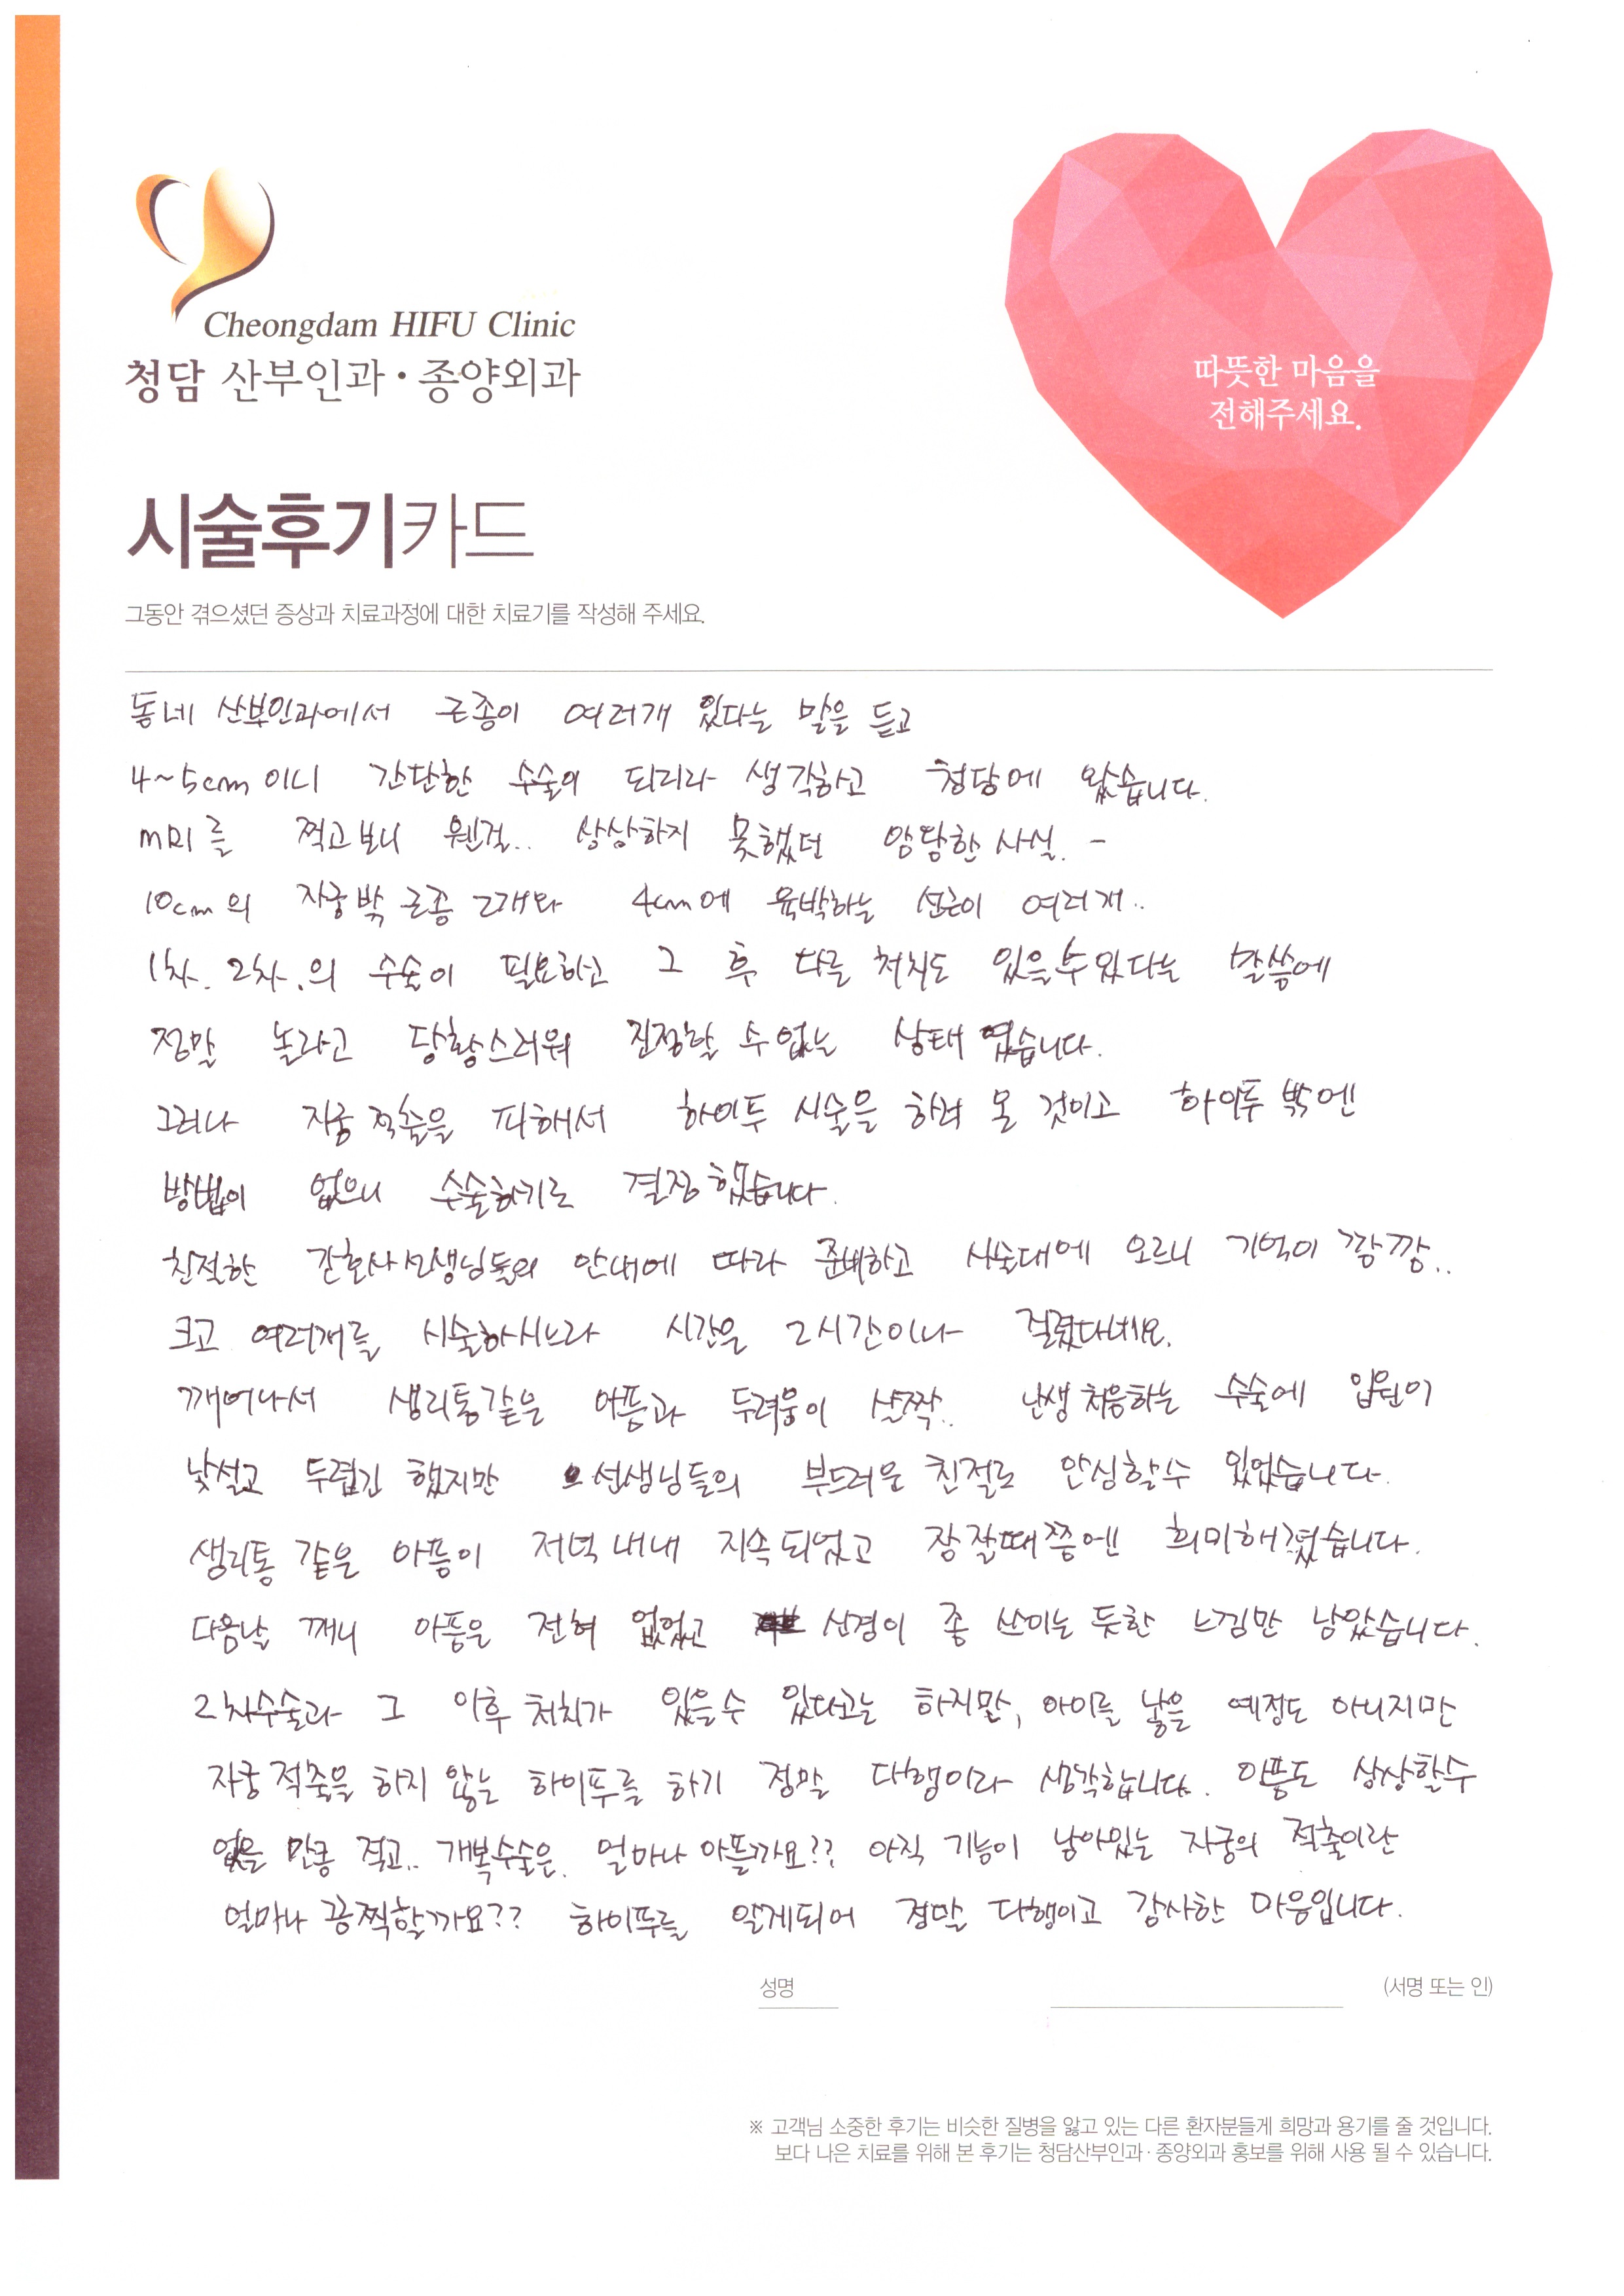 Cheongdam HIFU Clinic
청담 산부인과·종양외과
따뜻한 마음을
전해주세요.
시술후기카드
그동안 겪으셨던 증상과 치료과정에 대한 치료기를 작성해 주세요.
동네 산부인과에서 근종이 여러개 있다는 말을 듣고
4~5cm 이니 간단한 수술이 되리라 생각하고 청담에 왔습니다.
MRI를 찍고보니 웬걸.. 상상하지 못했던 황당한 사실. -
10cm의 자궁밖 근종 2개와 4cm에 육박하는 선근이 여러개..
1차. 2차.의 수술이 필요하고 그 후 다른 처치도 있을수있다는 말씀에
정말 놀라고 당황스러워 진정할 수 없는 상태 였습니다.
그러나 자궁 적출을 피해서 하이푸 시술을 하려 온 것이고 하이푸 밖엔
방법이 없으니 수술하기로 결정했습니다.
친절한 간호사선생님들의 안내에 따라 준비하고 시술대에 오르니 기억이 깜깜..
크고 여러개를 시술하시느라 시간은 2시간이나 걸렸다네요.
깨어나서 생리통같은 아픔과 두려움이 살짝.. 난생 처음하는 수술에 입원이
낯설고 두렵긴 했지만 선생님들의 부드러운 친절로 안심할수 있었습니다.
생리통 같은 아픔이 저녁 내내 지속되었고 잠잘때쯤엔 희미해졌습니다.
다음날 깨니 아픔은 전혀 없었고 신경이 좀 쓰이는 듯한 느낌만 남았습니다.
2차수술과 그 이후 처치가 있을수 있다고는 하지만, 아이를 낳을 예정도 아니지만
자궁 적출을 하지 않는 하이푸를 하기 정말 다행이라 생각합니다. 아픔도 상상할수
없을 만큼 적고.. 개복수술은. 얼마나 아플까요?? 아직 기능이 남아있는 자궁의 적출이란
얼마나 끔찍할까요?? 하이푸를 알게되어 정말 다행이고 감사한 마음입니다.
성명 (서명 또는 인)
※ 고객님 소중한 후기는 비슷한 질병을 앓고 있는 다른 환자분들게 희망과 용기를 줄 것입니다.
보다 나은 치료를 위해 본 후기는 청담산부인과·종양외과 홍보를 위해 사용 될 수 있습니다.